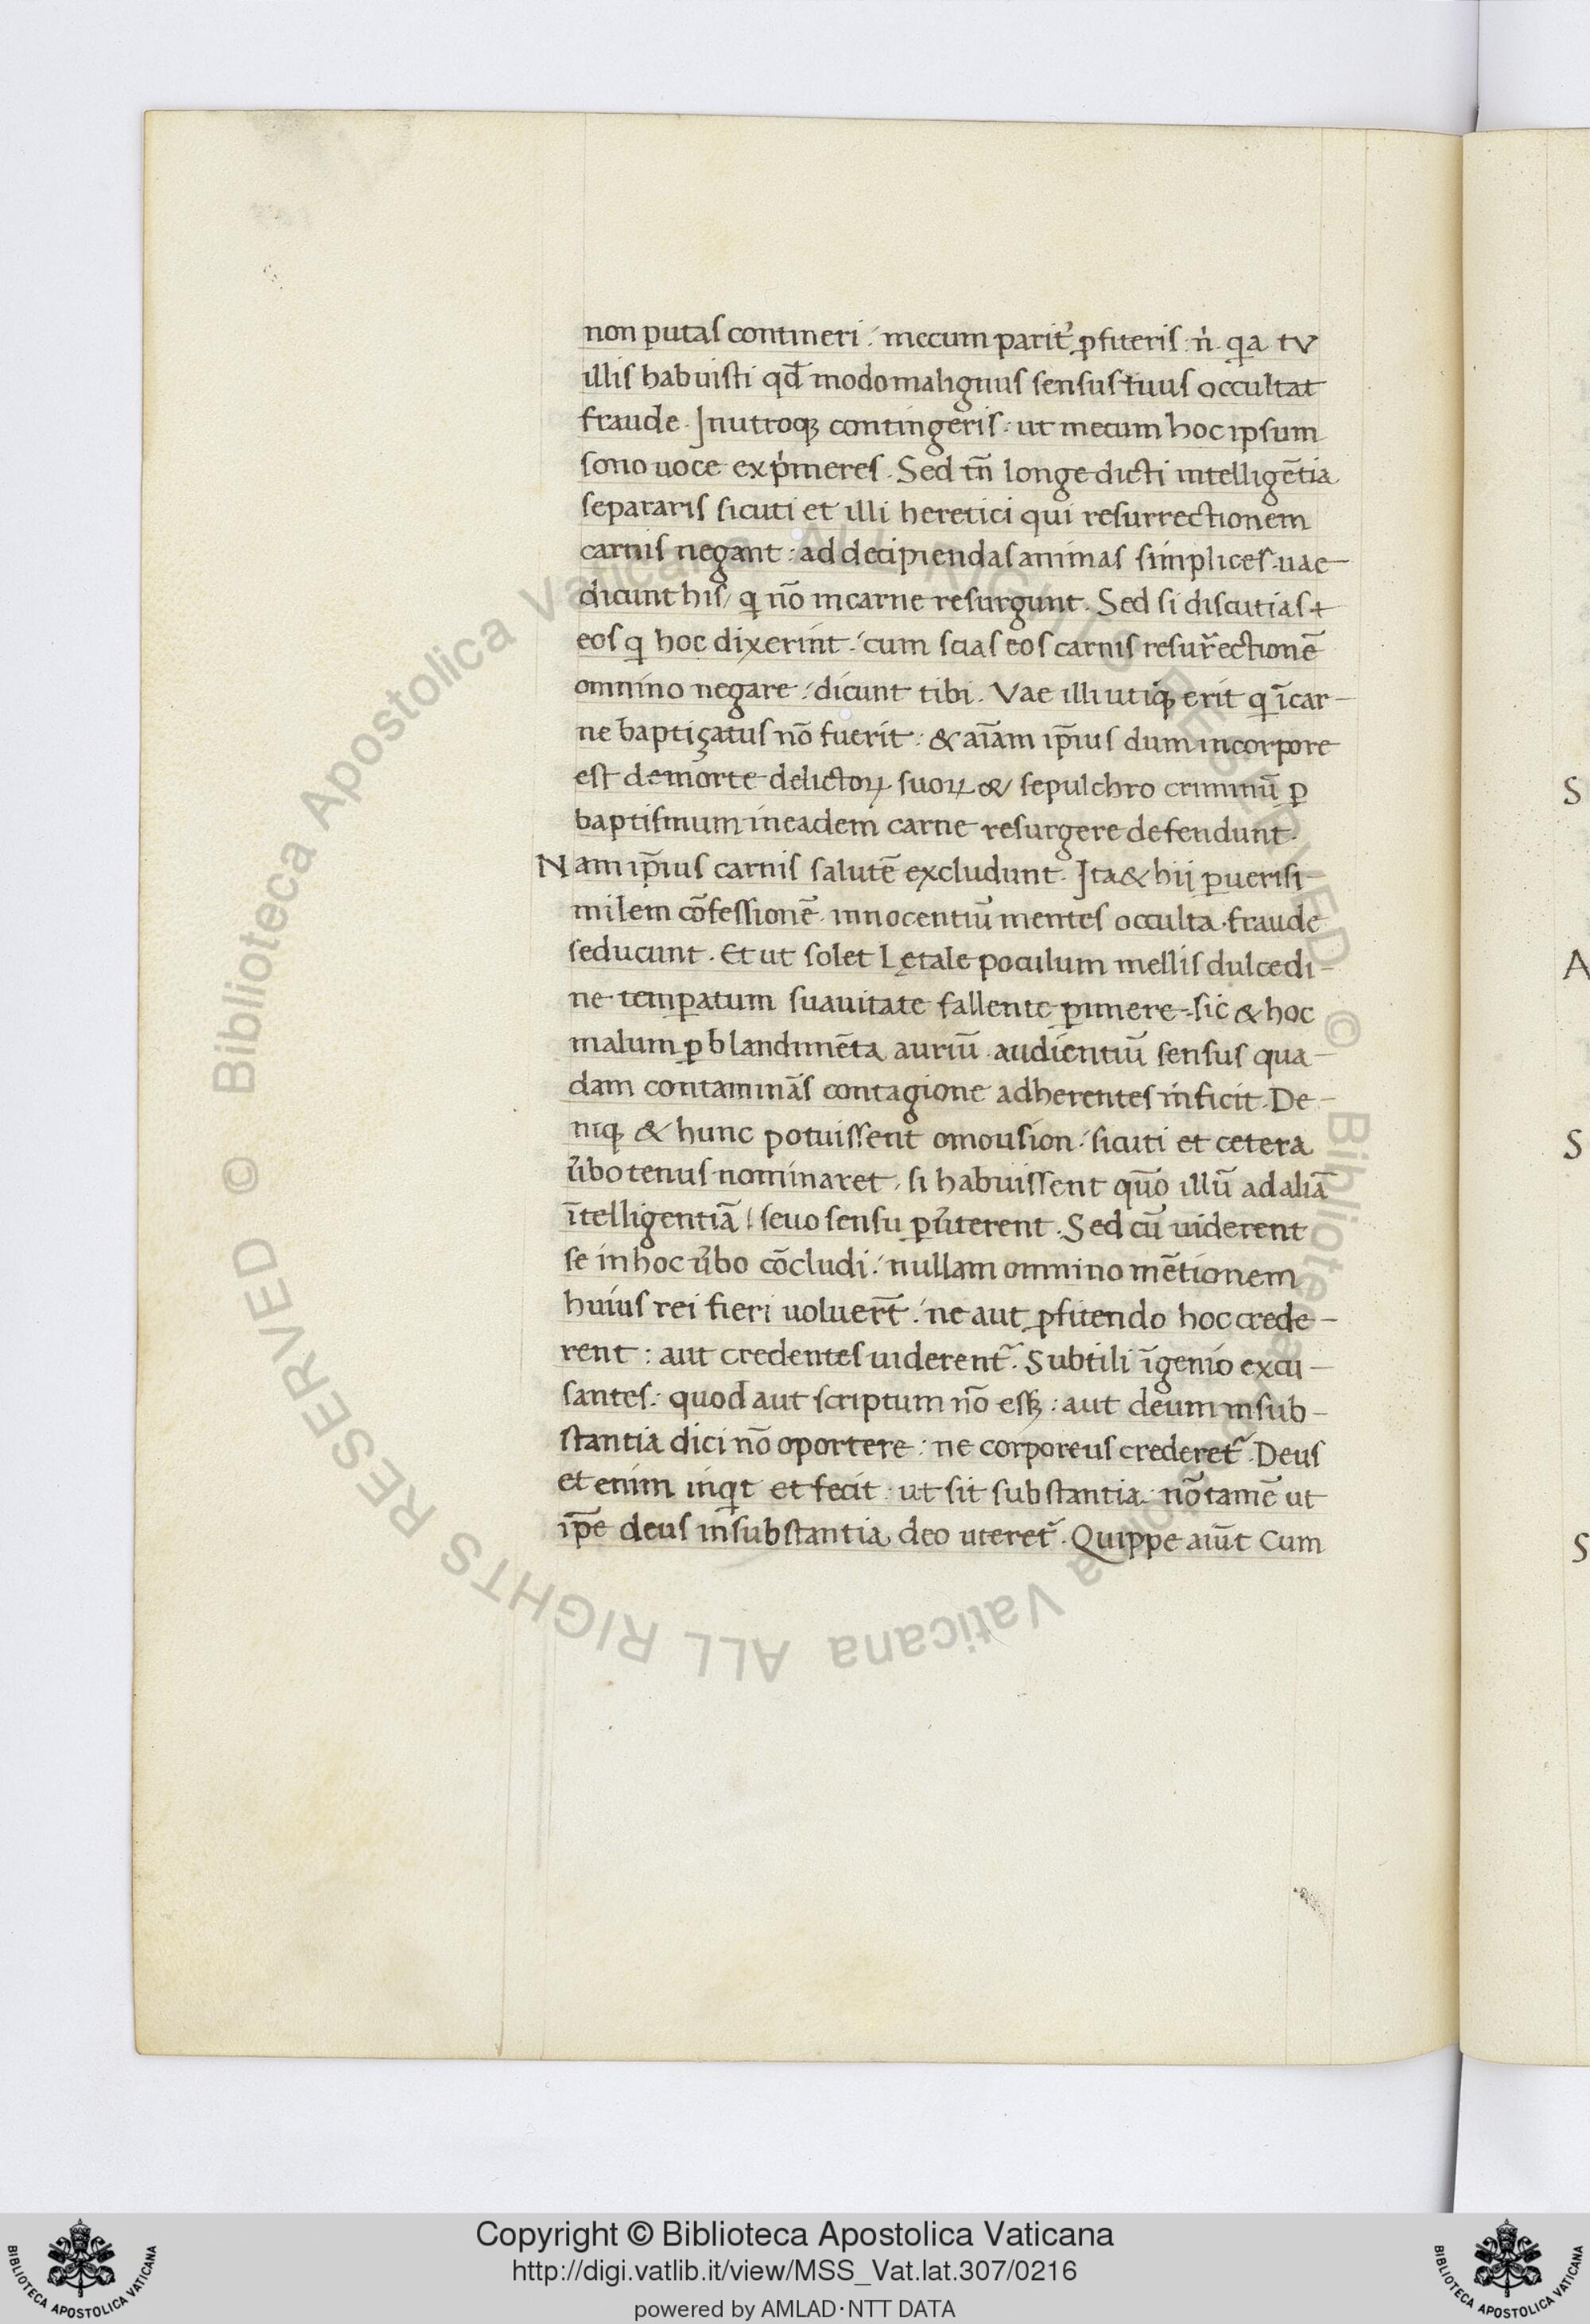 non putas contineri : mecum parit᷑ ꝓfiteris · n̍ · qa tu
illis habuisti qd̄ modo malignus sensus tuus occultat
fraude · Inutroqꝫ contingeris · ut mecum hoc ipsum
sono uoce exp̍meres · Sed tn̄ longe dicti intelligētia
separaris sicuti et illi heretici qui resurrectionem
carnis negant : ad decipiendas animas simplices · uae
dicunt his / q nō incarne resurgunt · Sed si discutias +
eos q hoc dixerint : cum scias eos carnis resur᷑ectionē
omnino negare : dicunt tibi · Vae illi utiqꝫ erit q īcar-
ne baptiçatus nō fuerit : & aīam ip̄ius dum incorpore
est demorte delictoꝝ suoꝝ & sepulchro criminū ꝑ
baptismum ineadem carne resurgere defendunt ·
Nam ip̄ius carnis salutē excludunt · Ita & hij ꝑuerisi-
milem cōfessionē innocentiū mentes occulta fraude
seducunt · Et ut solet Lętale poculum mellis dulcedi-
ne temꝑatum suauitate fallente ꝑimere · sic & hoc
malum ꝑ blandimēta auriū audientiū sensus qua-
dam contaminās contagione adherentes inficit · De-
niqꝫ & hunc potuissent omousion : sicuti et cetera
u᷑bo tenus nominaret, si habuissent quō illū ad aliā
ītelligentiā seuo sensu ꝑu᷑terent · Sed cū uiderent
se inhoc u᷑bo cōcludi : nullam omnino mētionem
huius rei fieri uoluer̄t : ne aut ꝓfitendo hoc crede-
rent : aut credentes uiderent᷑ · Subtili īgenio excu-
santes : quod aut scriptum nō essꝫ : aut deum insub-
stantia dici nō oportere : ne corporeus crederet᷑ · Deus
et enim inqt et fecit · ut sit substantia · nō tamē ut
ip̄e deus insubstantia deo uteret᷑ · Quippe aiūt Cum
S
A
S
S
© Biblioteca Apostolica Vaticana ALL RIGHTS RESERVED
© Biblioteca Apostolica Vaticana ALL RIGHTS RESERVED
Copyright © Biblioteca Apostolica Vaticana
http://digi.vatlib.it/view/MSS_Vat.lat.307/0216
powered by AMLAD·NTT DATA
BIBLIOTECA APOSTOLICA VATICANA
BIBLIOTECA APOSTOLICA VATICANA